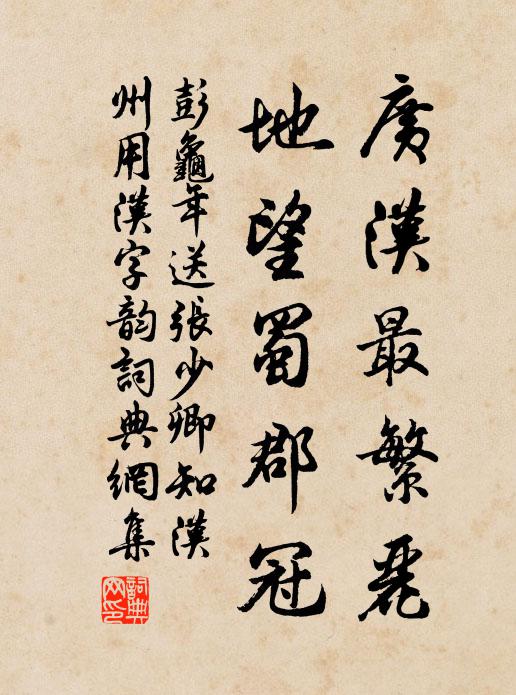 廣漢最繁麗
地望蜀郡冠
彭龜年送張少卿知漢
州用漢字韵詞典網集
詞典网印